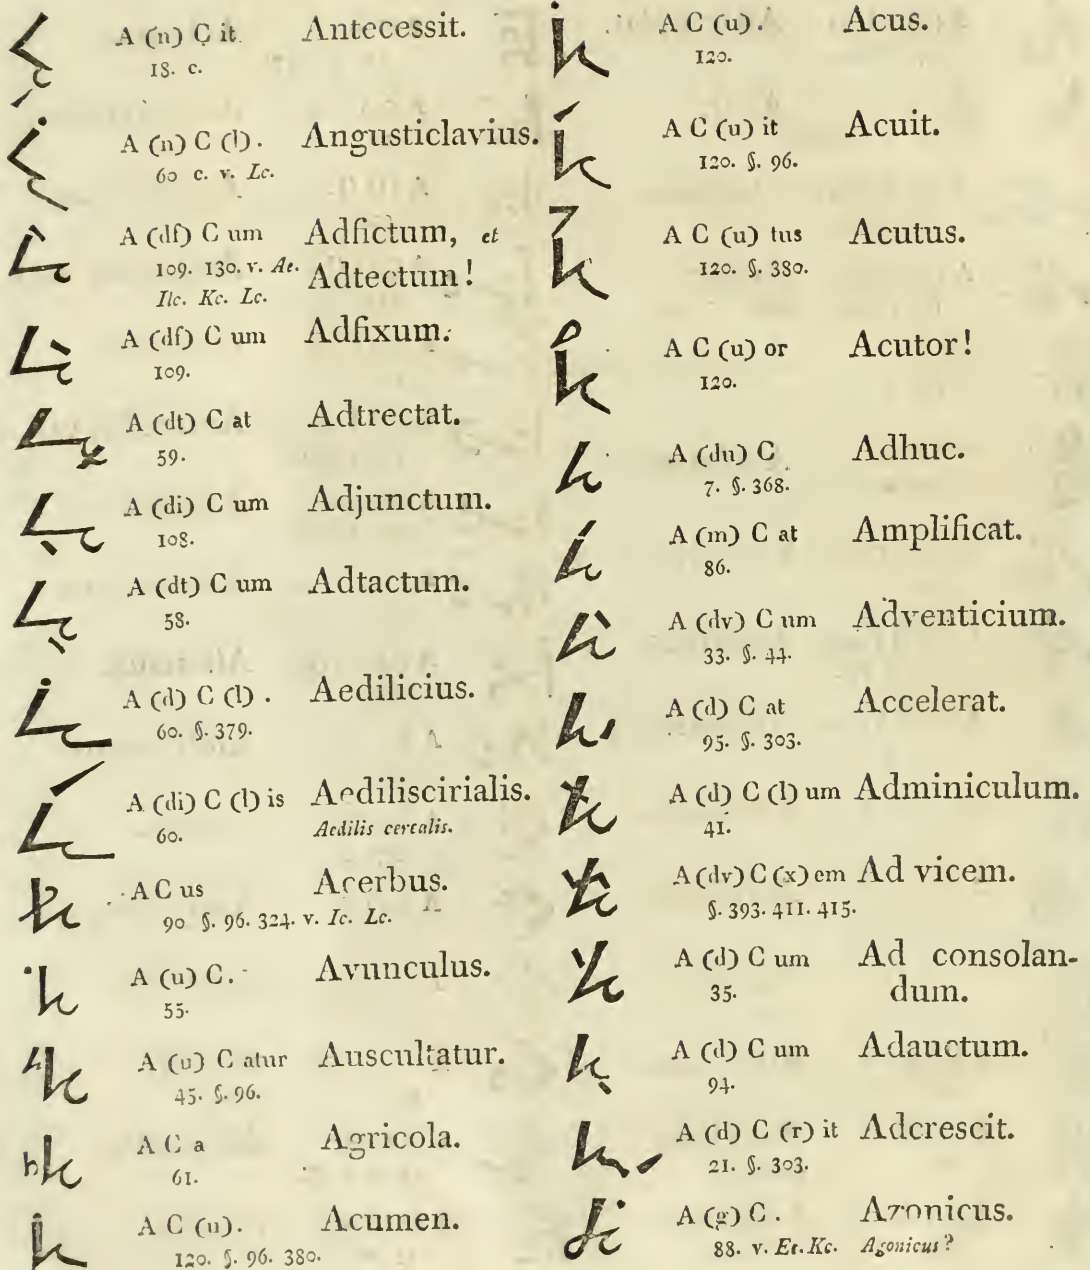 A (n) C it Antecessit.
18. c.
A (n) C (l). Angusticlavius.
60 c. v. Lc.
A (df) C um Adfictum, et
109. 130. v. Ae. Adtectum!
Ilc. Kc. Lc.
A (df) C um Adfixum.
109.
A (dt) C at Adtrectat.
59.
A (di) C um Adjunctum.
108.
A (dt) C um Adtactum.
58.
A (d) C (l) . Aedilicius.
60. §. 379.
A (di) C (l) is Aediliscirialis.
60. Aedilis cerealis.
A C us Acerbus.
90 §. 96. 324. v. Ic. Lc.
A (u) C. Avunculus.
55.
A (u) C atur Auscultatur.
45. §. 96.
A C a Agricola.
61.
A C (u). Acumen.
120. §. 96. 380.
A C (u). Acus.
120.
A C (u) it Acuit.
120. §. 96.
A C (u) tus Acutus.
120. §. 380.
A C (u) or Acutor!
120.
A (du) C Adhuc.
7. §. 368.
A (m) C at Amplificat.
86.
A (dv) C um Adventicium.
33. §. 44.
A (d) C at Accelerat.
95. §. 303.
A (d) C (l) um Adminiculum.
41.
A (dv) C (x) em Ad vicem.
§. 393. 411. 415.
A (d) C um Ad consolan-
35. dum.
A (d) C um Adauctum.
94.
A (d) C (r) it Adcrescit.
21. §. 303.
A (g) C . Azonicus.
88. v. Ec. Kc. Agonicus?